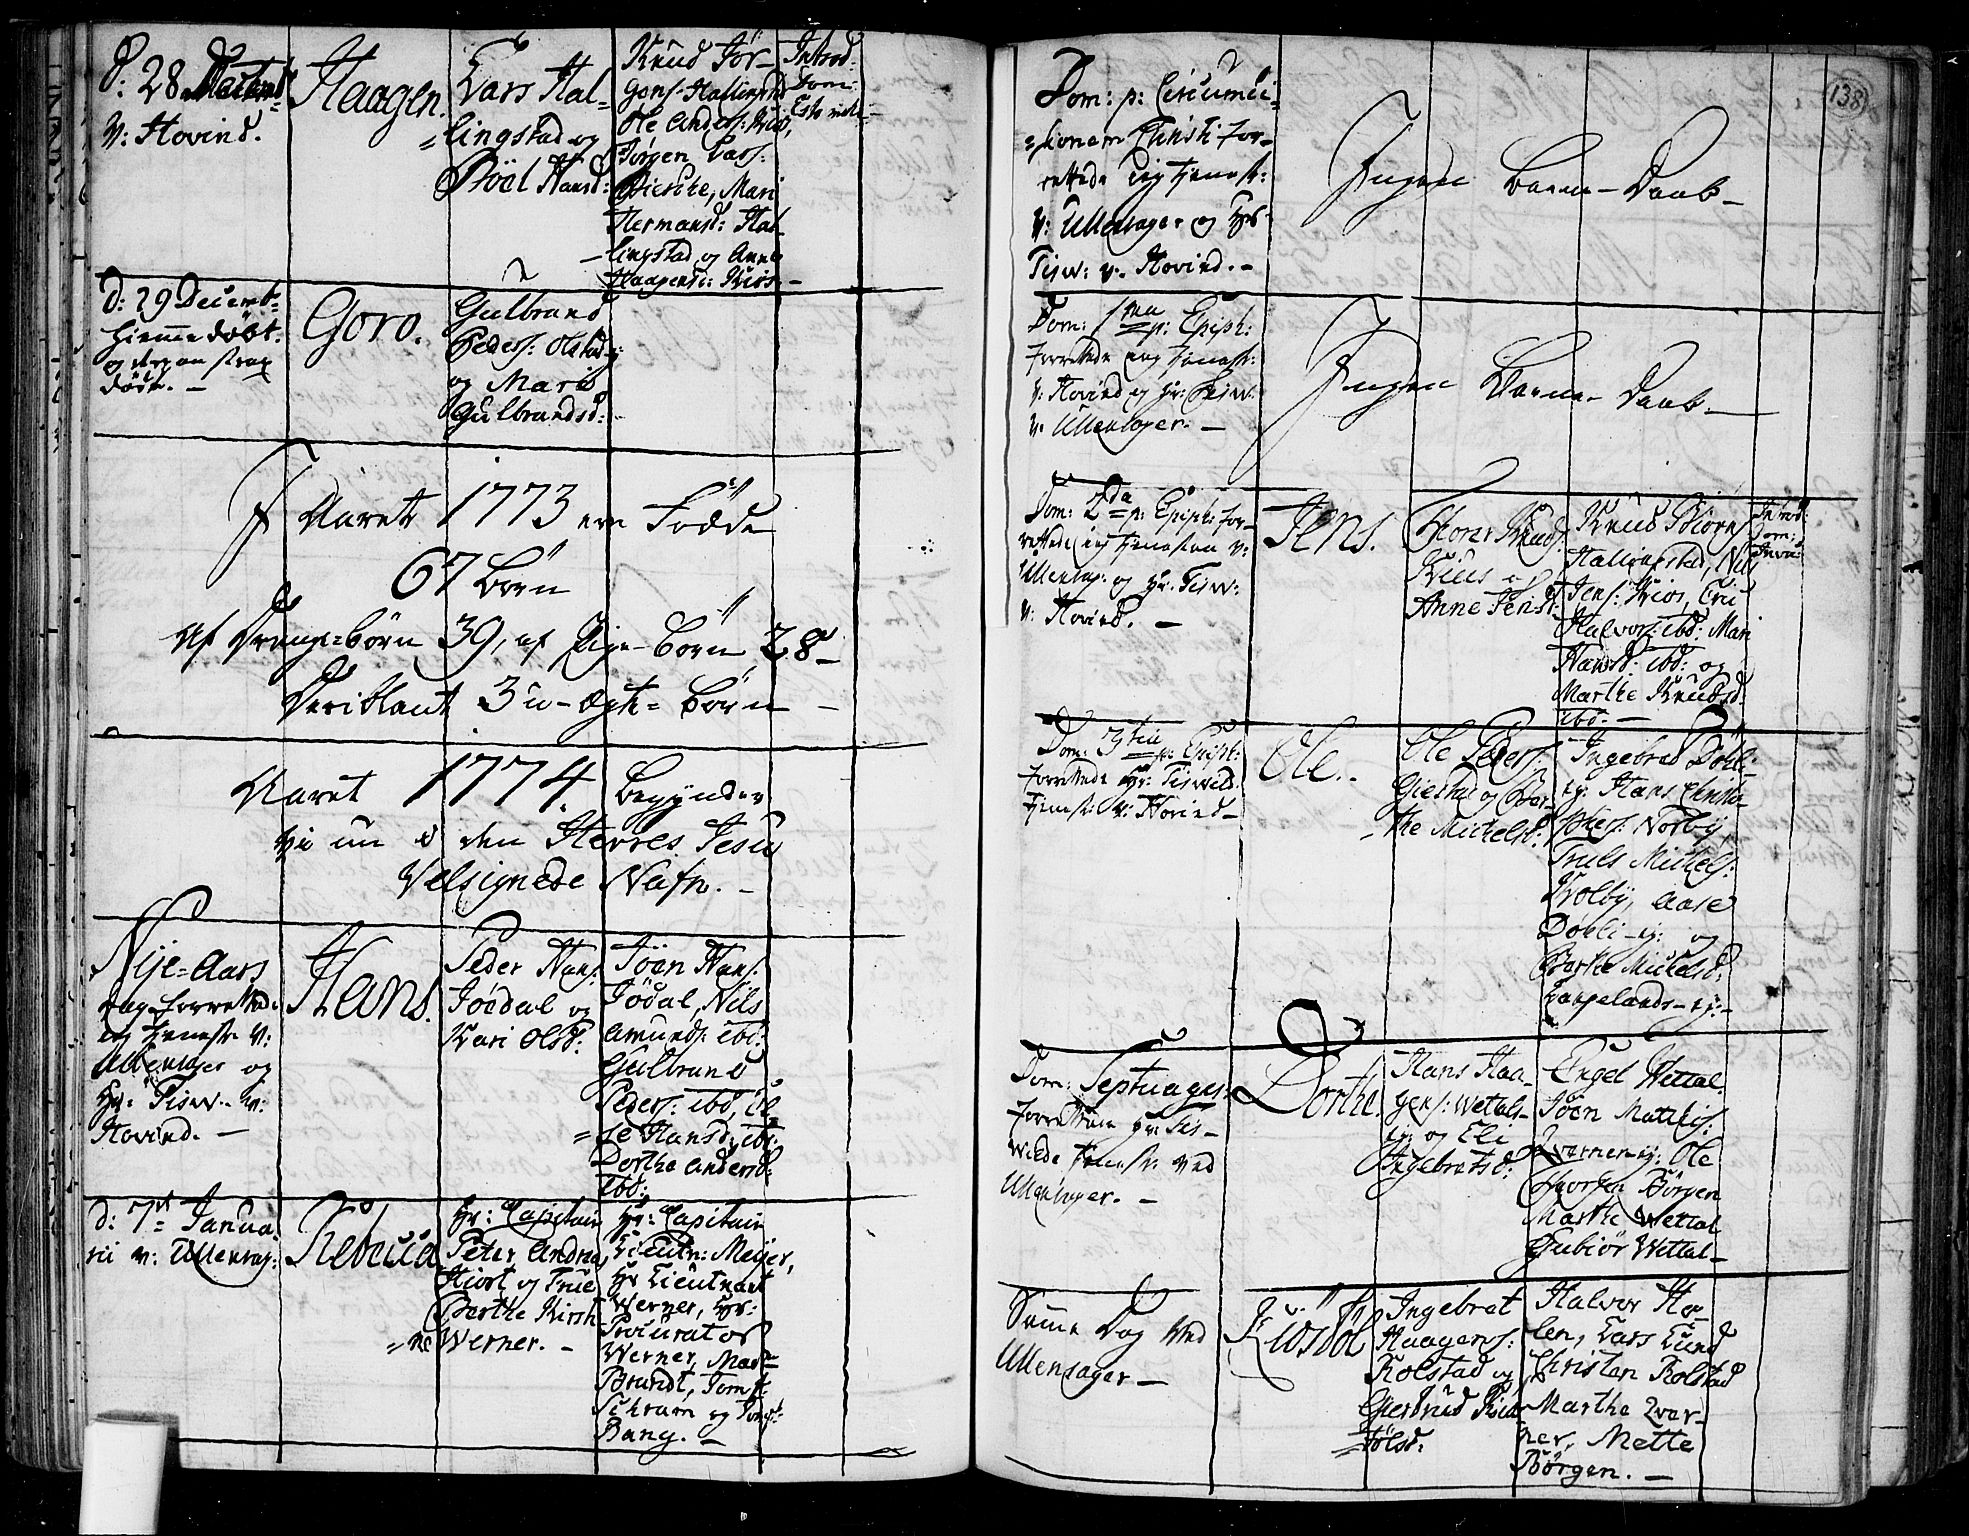 d: 28 Decemb:
v: Hovind.
Haagen.
Lars Hal=
=lingstad og
Böel Hansd:
Knud Jör-
gens. Hallingstad
Ole Anders: Kiös,
Jörgen Lars:
Mari
Hermansd: Hal-
-lingstad og Anne
Haagensd: Kiös. -
Introd:
Dom:
Esto mihi
d: 29 Decemb:
hiemmedöbt:
og strax
död. -
Goro.
Gulbrand
Peders: Olstad-ej:
og Mari
Gulbrandsd: -
I Aaret 1773 ere Födde
67 Börn
Af Drenge=börn 39, af Pige-börn 28-
Deriblant 3 u-ægte= Börn -
Aaret 1774. begynder
vi nu i den Herres Jesu
Velsignede Nafn. -
Nye=Aars
dag forrettede
ieg tjeneste v:
Ullensager og
Hr: Tisw. v:
Hovind. -
Hans.
Peder Hans:
Jödal og
Kari Olsd:
Jöen Hans:
Jödal, Nils
Amunds: ibd:
Gulbrand
Peders: ibd, El
=se Hansd: ibd:
Dorthe Andersd:
ibd:
d: 7de Janua
rii v: Ullensag:
Rebecca
Hr: Capitain
Peter Andrea
Hiort og Frue
Berthe Kirsti-
=ne Werner. -
Hr: Capitain
Lieutn: Meijer,
Hr Lieutnant
Werner, Hr:
Procurator
Werner, Mad:
Brandt, Jomf:
Schram og Jomf:
Bang. -
138
Dom: p: Circumci=
=sionem Christi for-
rettede ieg tjenest:
v: Ullensager og Hr:
Tisw: v: Hovind. -
Ingen Barne-Daab -
Dom: 1ma p: Epiph:
forrettede ieg tjenest:
v: Hovind og Hr: Tisw.
v: Ullensager. -
Ingen Barne-Daab -
Dom: 2da p: Epiph: for-
rettede ieg tjenesten v:
Ullensag: og Hr: Tisw:
v: Hovind. -
Jens.
Thorer Knuds:
Kiös og
Anne Jensd:
Knud Biörns:
Hallingstad, Nils
Jens: Kiös, Eru
Halvors: ibd: Mari
Hansd: ibd: og
Marthe Knudsd:
ibd. -
Introd:
Dom:
Invoc:
Dom: 3tia p: Epiph:
forrettede Hr: Tiswild.
tjenest: v: Hovind -
Ole.
Ole Peders:
Giestad og Ber-
-the Michelsd:
Ingebred Döhli-
ej: Hans Christo-
phers: Norby,
Truls Michels:
Kolby, Aase
Döhli-ej: og
Berthe Michelsd:
Langelands-ej: -
Dom: Septuages:
forrettede Hr: Tis-
wilde tjenest: ved
Ullensager. -
Dorthe.
Hans Haa-
gens: Wettal-
ej: og Eli
Ingebretsd:
Engel Wettal
Jöen Matthis:
Qverner-ej: Ole
Börgen
Marthe Wettal
Gubiör Wettal-
Samme Dag ved
Ullensager -
Kiöstöl
Ingebret
Haagens:
Rolstad og
Giertrud Kiös
=tölsd:
Halvor Ho-
len, Lars Lund
Christen Rolstad
Marthe Qver-
ner, Mette
Börgen. -